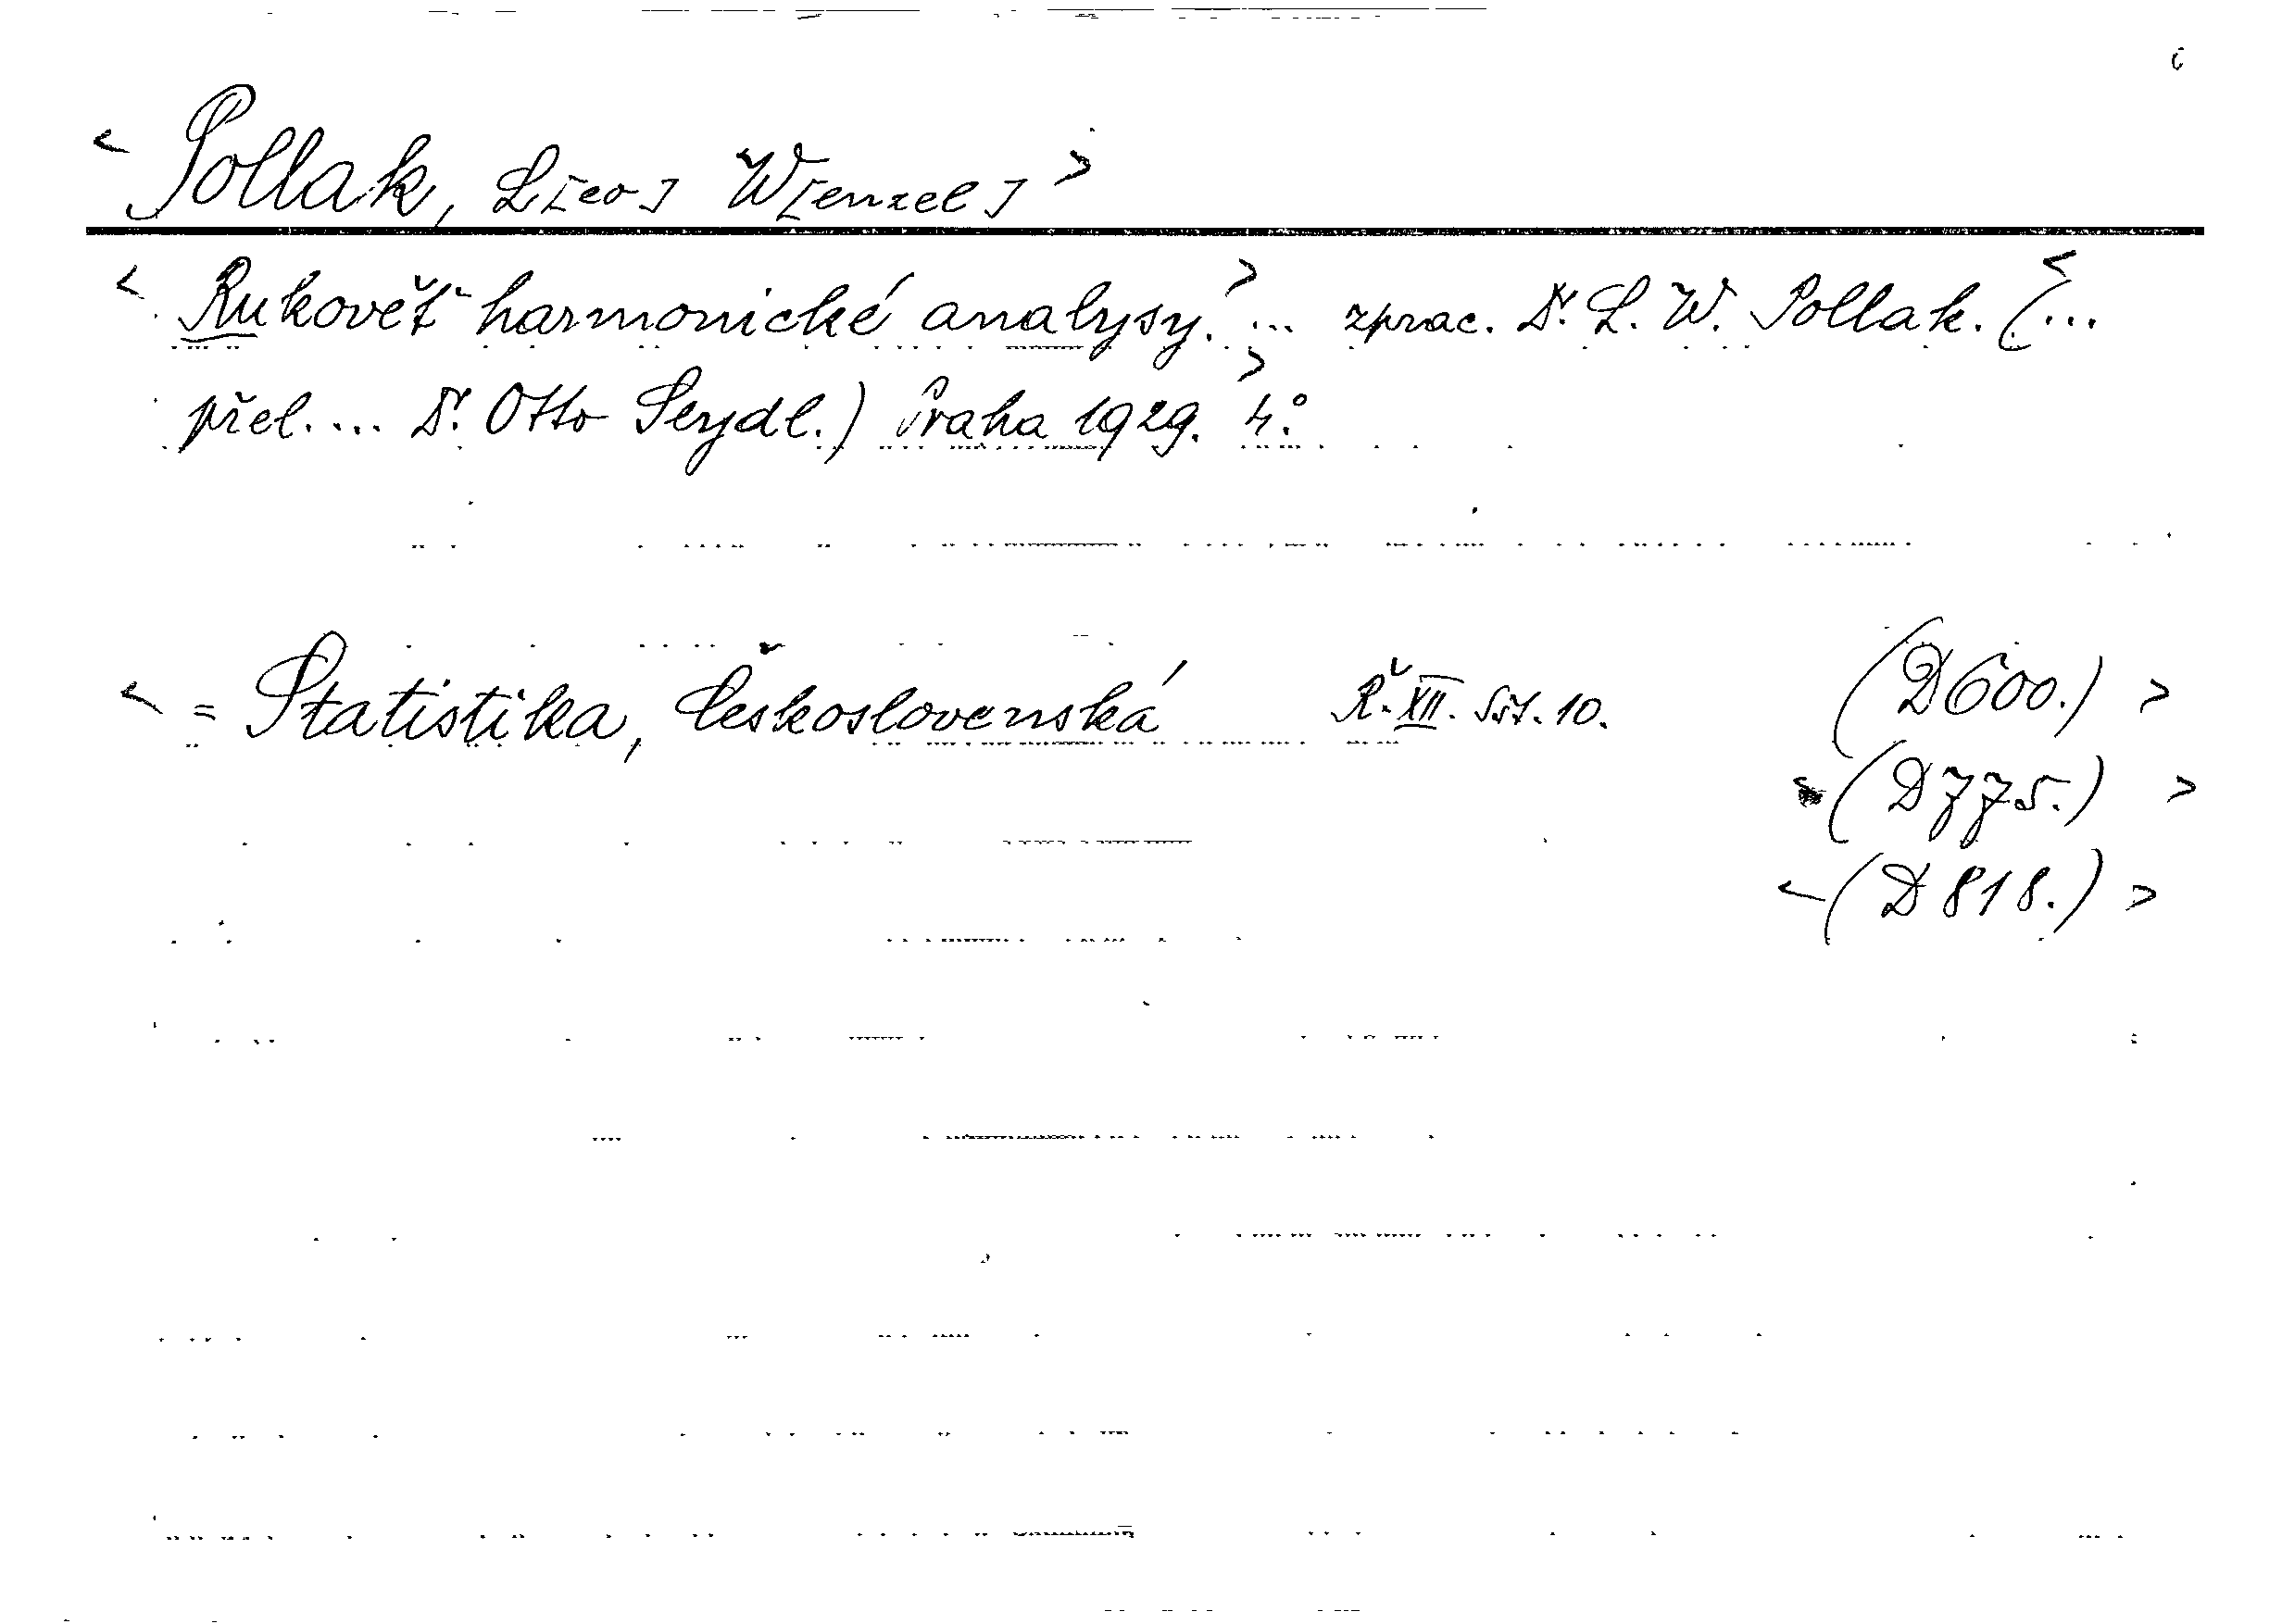 < Pollak, L[eo] W[enzel] >
< Rukověť harmonické analysy.> ... zprac. Dr. L. W. Pollak. <(...
přel. ... Dr. Otto Seydl.) Praha 1929.> 4.°
< = Statistika, Československá Ř. XII. Seš. 10. (D 600.) >
<(D 775.) >
<(D 818.) >